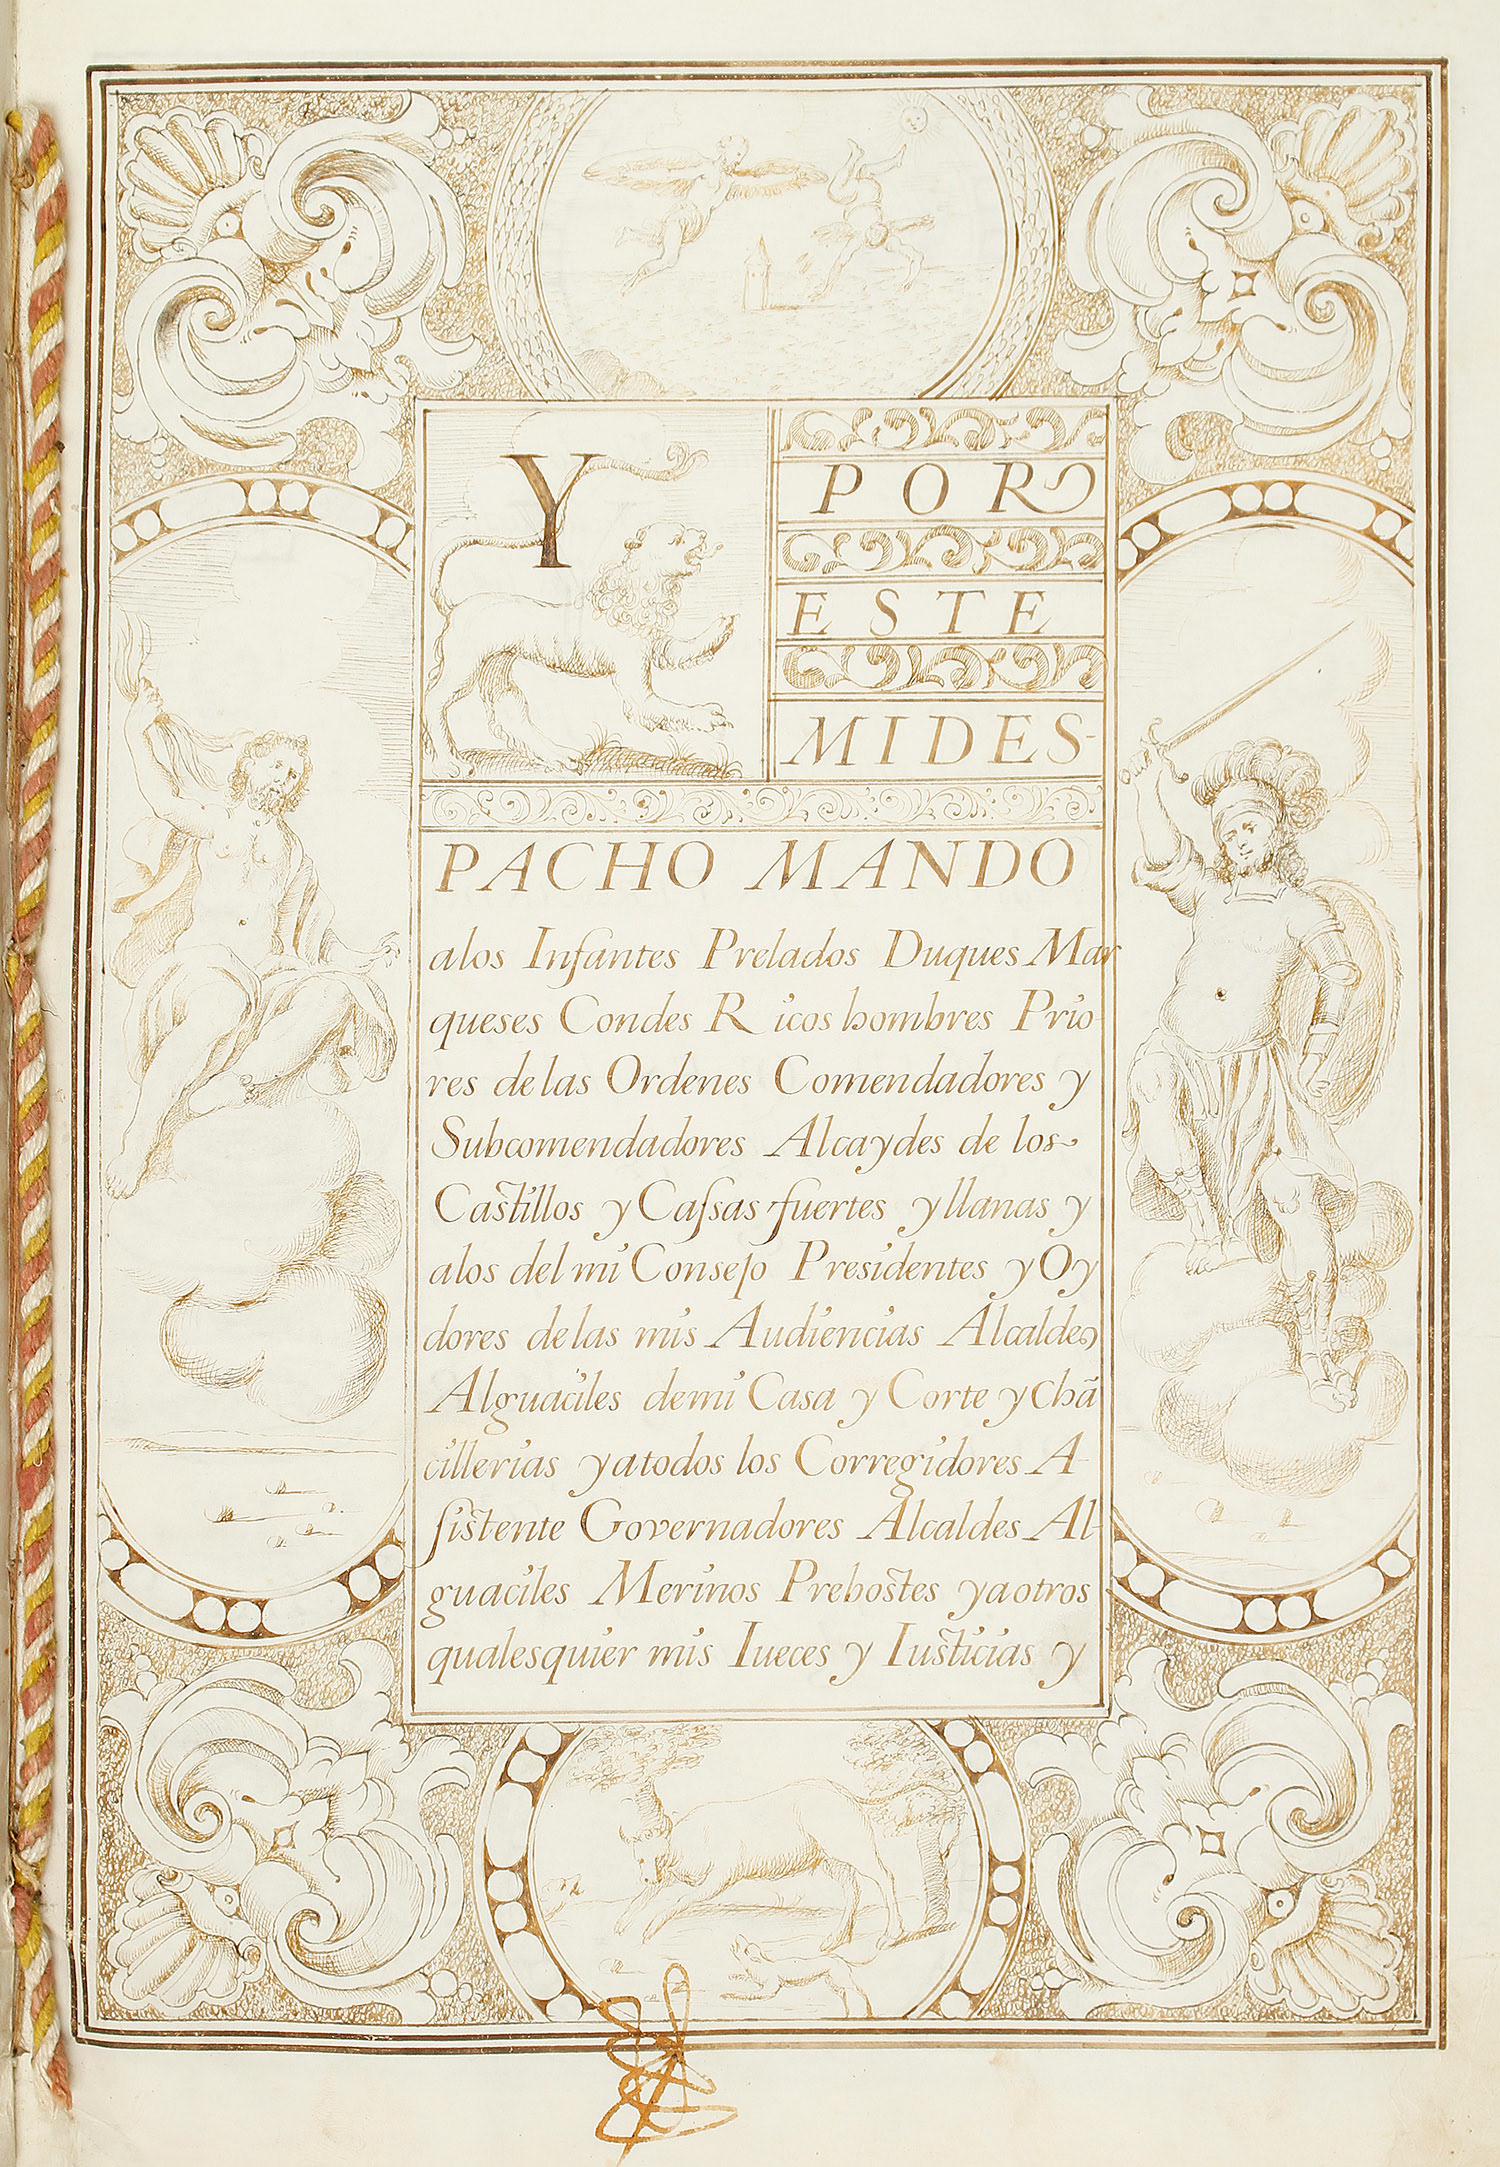 Y POR
ESTE
MIDES-
PACHO MANDO
alos Infantes Prelados Duques Mar
queses Condes Ricos hombres Prio
res delas Ordenes Comendadores y
Subcomendadores Alcaydes de los
Castillos y Caſsas fuertes y llanas y
alos del mi Consejo Presidentes y Oy
dores delas mis Audiencias Alcaldes
Alguaciles demi Casa y Corte y Chã
cillerias yatodos los Corregidores A-
ſistente Governadores Alcaldes Al-
guaciles Merinos Prebostes yaotros
qualesquier mis Iueces y Iusticias y